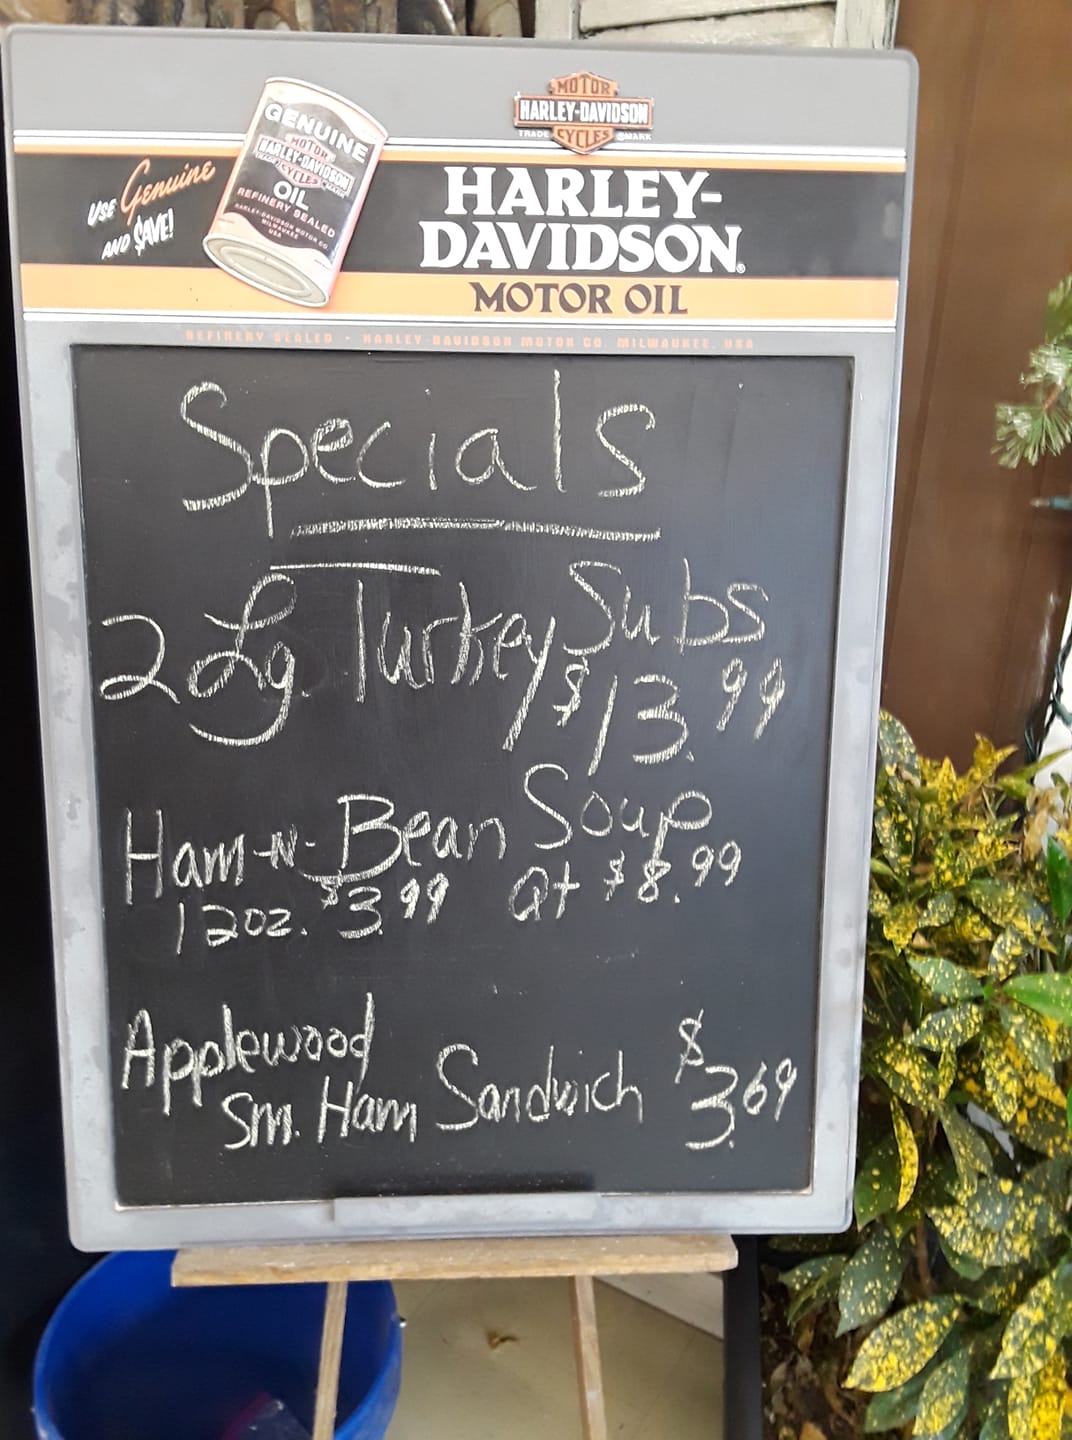 MOTOR
HARLEY-DAVIDSON
TRADE CYCLES ®MARK
USE Genuine
AND $AVE!
GENUINE
MOTOR
HARLEY-DAVIDSON
CYCLES
OIL
REFINERY SEALED
HARLEY-DAVIDSON MOTOR CO.
MILWAUKEE
USA
HARLEY-
DAVIDSON®
MOTOR OIL
REFINERY SEALED - HARLEY-DAVIDSON MOTOR CO. MILWAUKEE, USA
Specials
2 Lg. Turkey Subs
$13.99
Ham-N-Bean Soup
12oz. $3.99 Qt $8.99
Applewood
Sm. Ham Sandwich $3.69